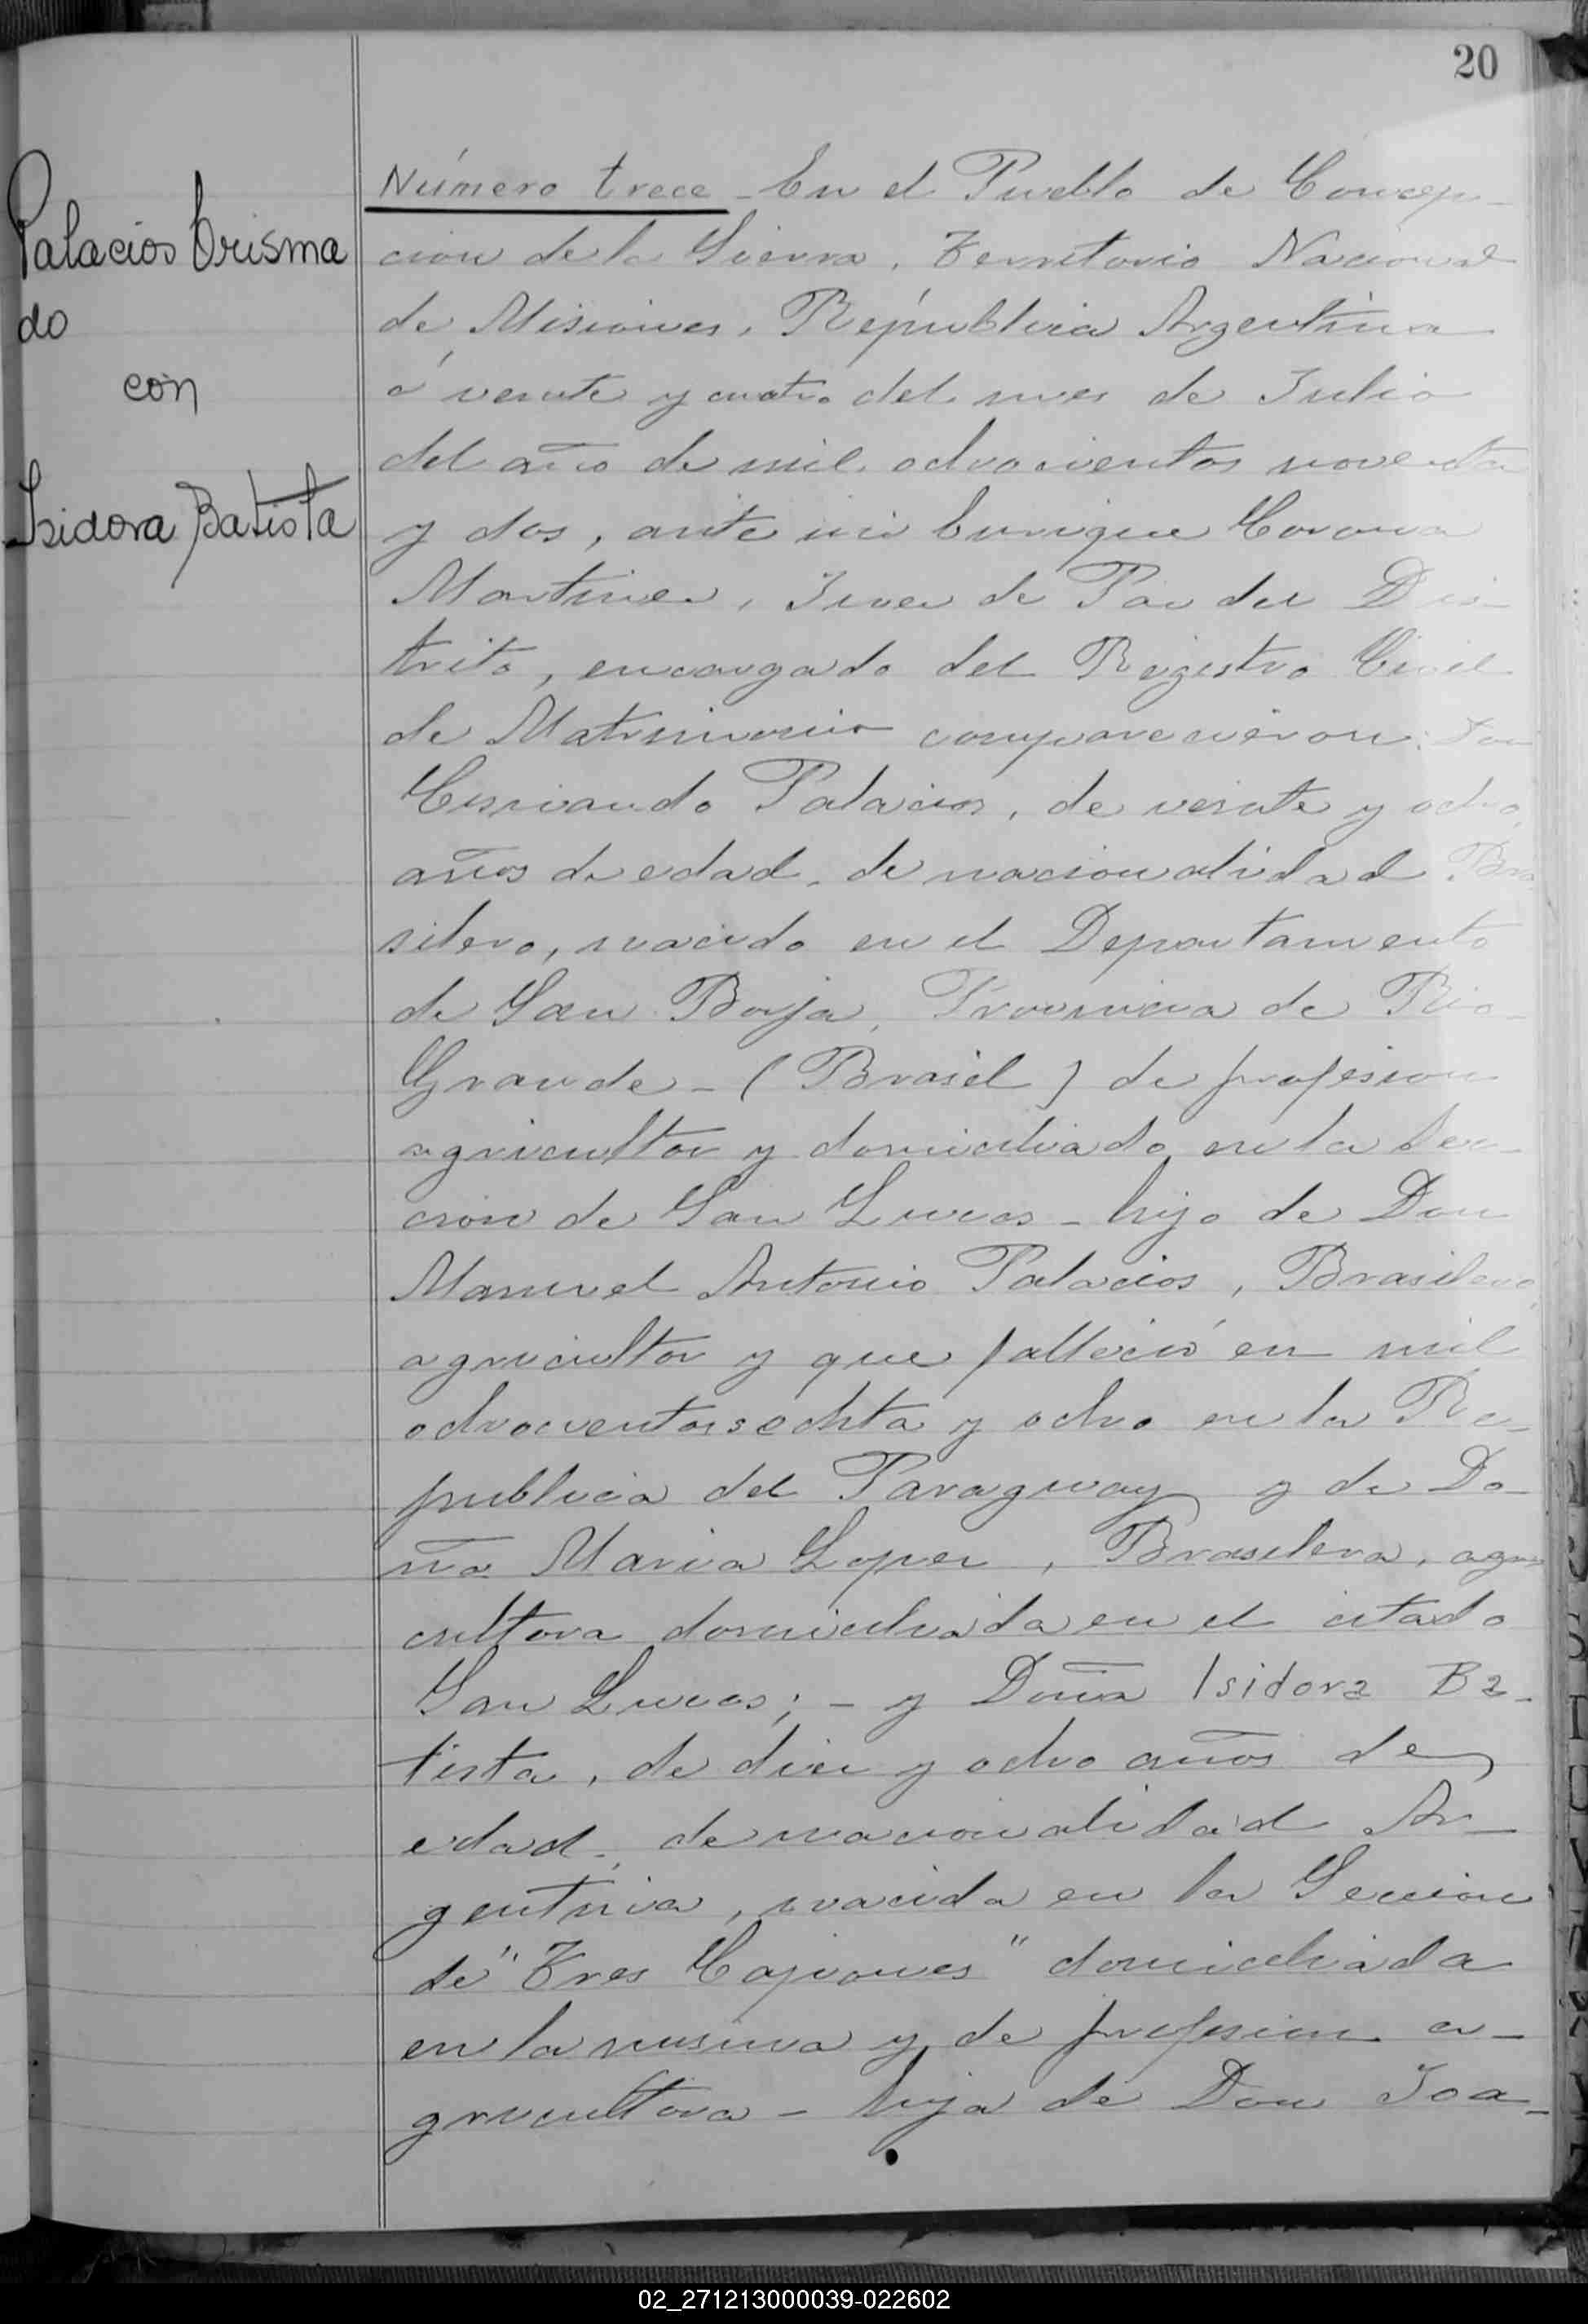 20
Palacios Crisma
do
con
Isidora Batista
Número trece - En el Pueblo de Concep-
cion de la Sierra, Territorio Nacional
de Misiones, República Argentina
á veinte y cuatro del mes de Julio
del año de mil ochocientos noventa
y dos, ante mi Enrique Corona
Martinez, Juez de Paz del Dis-
trito, encargado del Registro Civil
de Matrimonio comparecieron: Don
Palacios, de veinte y ocho
años de edad, de nacionalidad Bra
silero, nacido en el Departamento
de San Borja, Provincia de Rio-
Grande - (Brasil) de profesion
agricultor y domiciliado en la Sec-
cion de San Lucas - hijo de Don
Manuel Antonio Palacios, Brasilero,
agricultor y que falleció en mil
ochocientos y ocho en la Re-
publica del Paraguay y de Do-
ña Maria Lopez, Brasilera, agri
cultora domiciliada en el citado
San Lucas; - y Doña Isidora Ba-
tista, de diez y ocho años de
edad, de nacionalidad Ar-
gentina, nacida en la Seccion
de "Tres Capones" domiciliada
en la misma y de profesion a-
gricultora - hija de Don Joa-
02_271213000039-022602